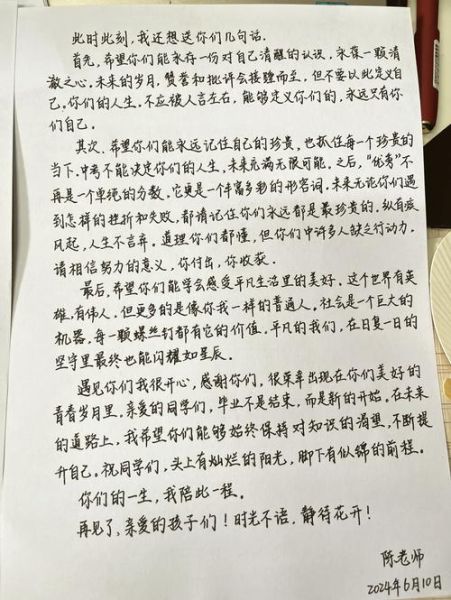 此时此刻,我还想送你们几句话。
首先,希望你们能永存一份对自己清醒的认识,永葆一颗清
澈之心。未来的岁月,赞誉和批评会接踵而至,但不要以此定义自
己。你们的人生,不应被人言左右,能够定义你们的,永远只有你
们自己。
其次,希望你们能永远记住自己的珍贵,也抓住每一个珍贵的
当下。中考不能决定你们的人生,未来充满无限可能。之后,“优秀”不
再是一个单纯的分数,它更是一个丰富多彩的形容词。未来无论你们遇
到怎样的挫折和失败,都请记住你们永远都是最珍贵的。纵有疾
风起,人生不言弃。道理你们都懂,但你们中许多人缺乏行动力。
请相信努力的意义,你付出,你收获。
最后,希望你们能学会感受平凡生活里的美好。这个世界有英
雄,有伟人,但更多的是像你我一样的普通人。社会是一个巨大的
机器,每一颗螺丝钉都有它的价值。平凡的我们,在日复一日的
坚守里最终也能闪耀如星辰。
遇见你们我很开心,感谢你们,很荣幸出现在你们美好的
青春岁月里。亲爱的同学们,毕业不是结束,而是新的开始。在未来
的道路上,我希望你们能够始终保持对知识的渴望,不断提
升自己。祝同学们,头上有灿烂的阳光,脚下有似锦的前程。
你们的一生,我陪此一程。
再见了,亲爱的孩子们!时光不语,静待花开!
陈老师
2024年6月10日